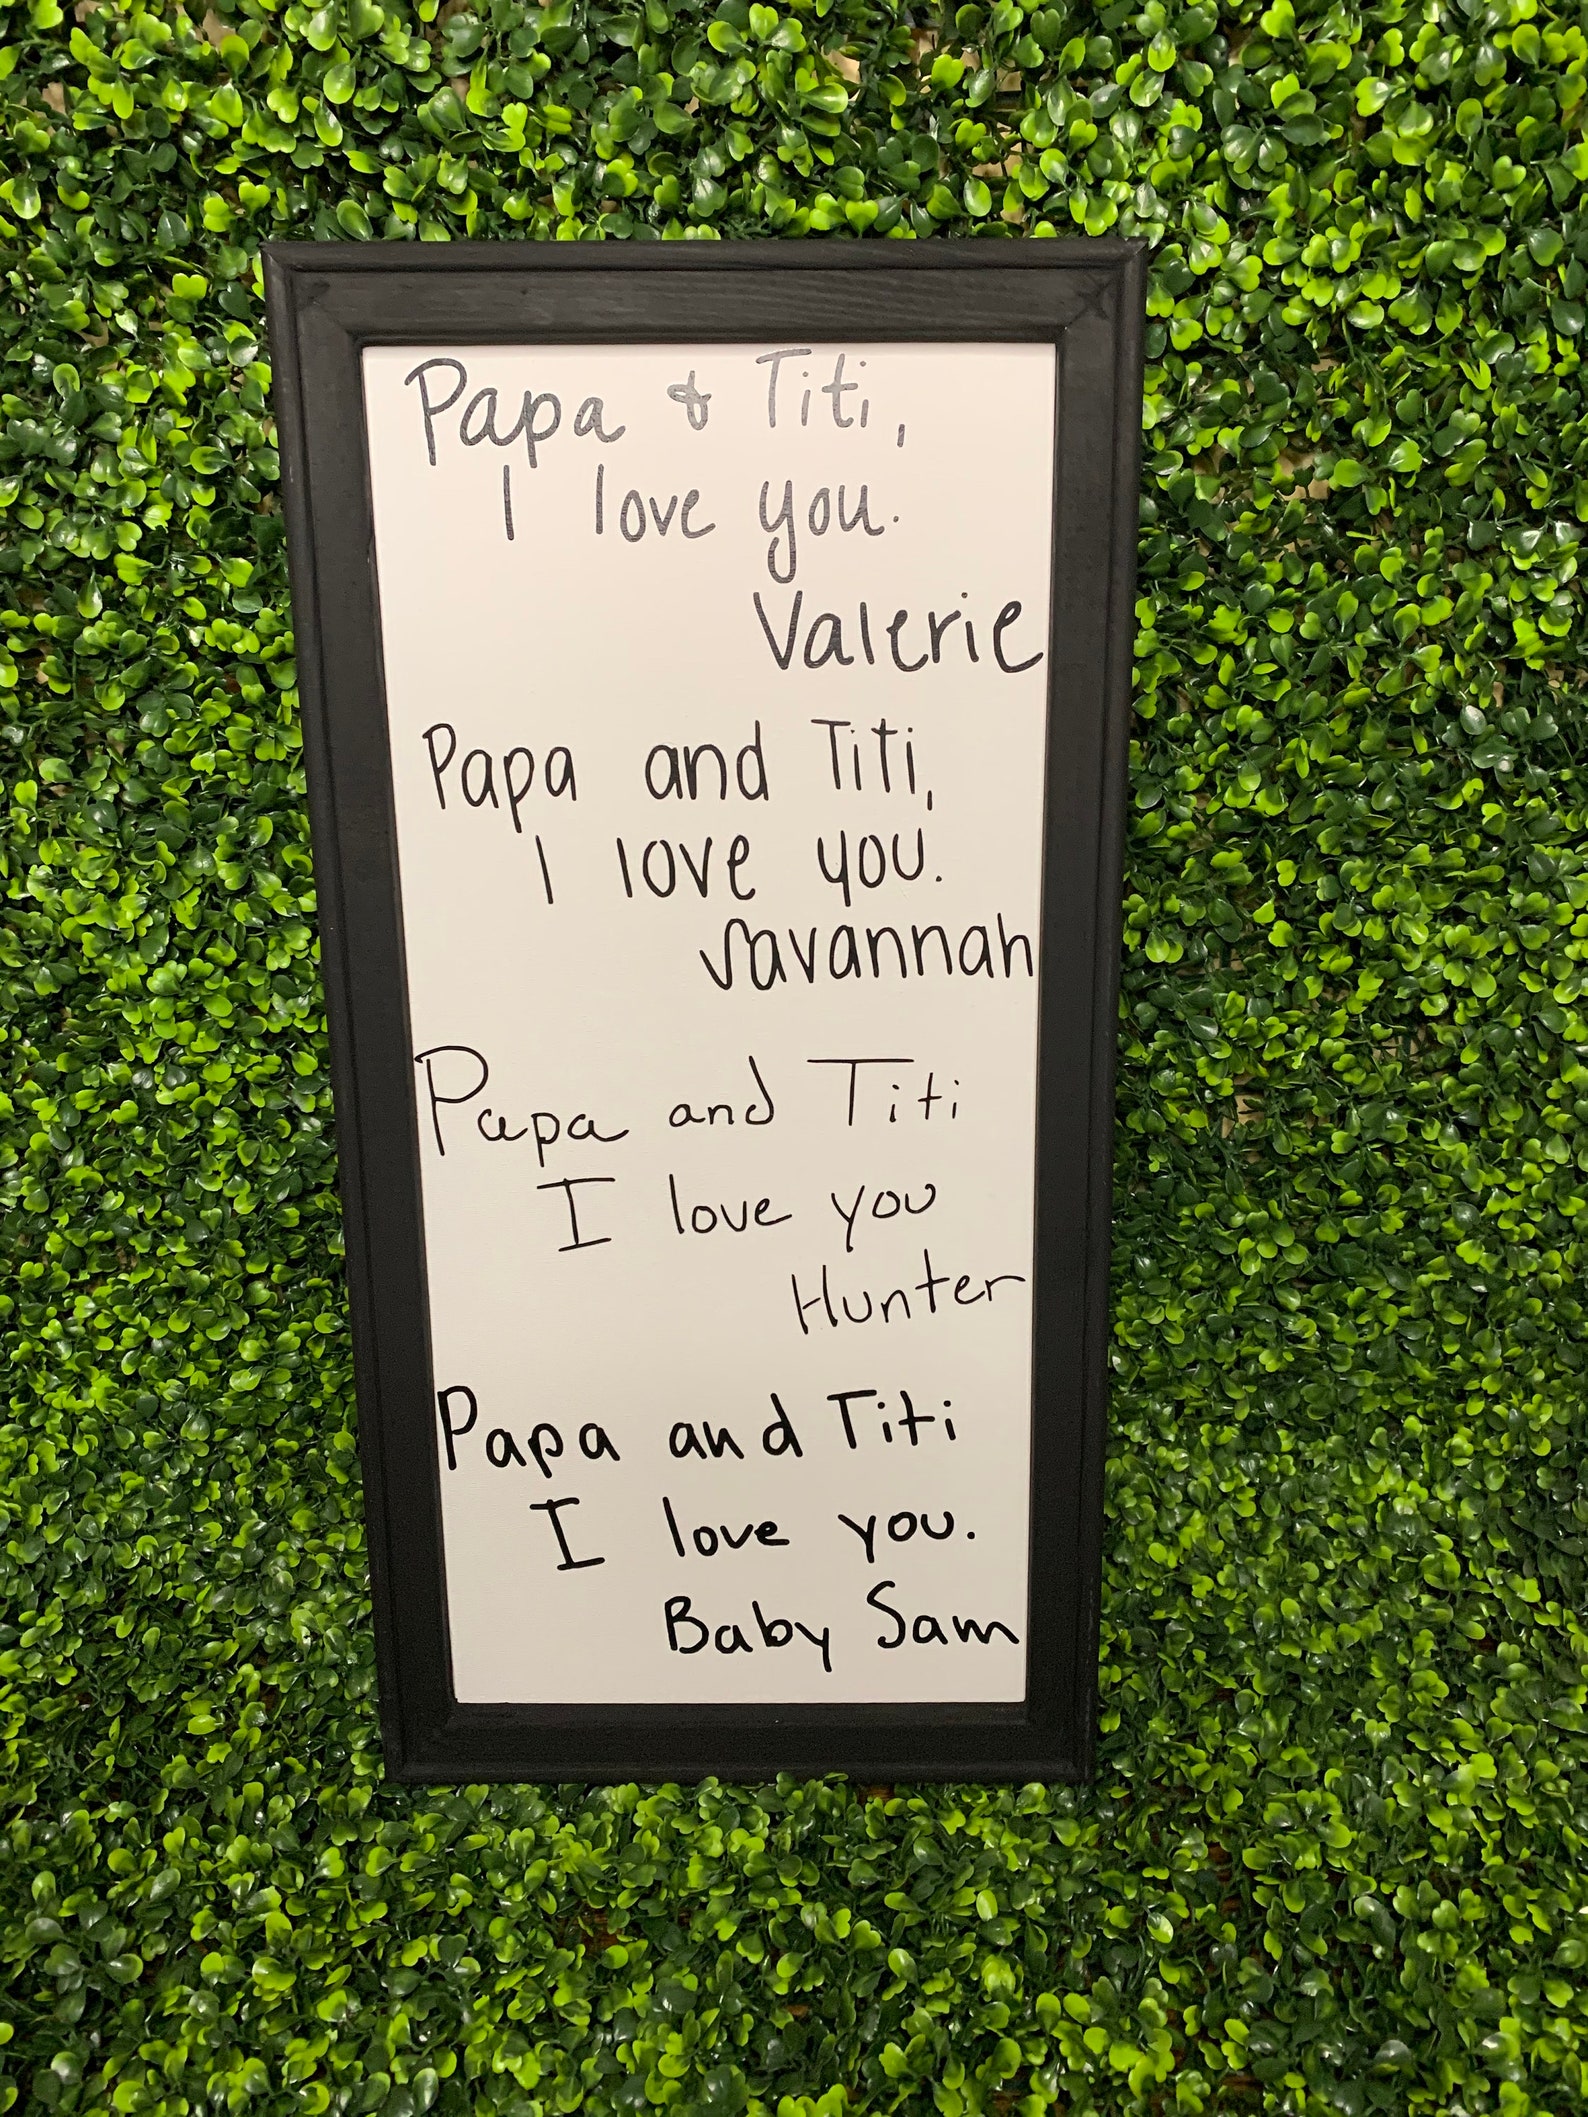 Papa & Titi,
I love you.
Valerie
Papa and Titi,
I love you.
Savannah
Papa and Titi
I love you
Hunter
Papa and Titi
I love you.
Baby Sam